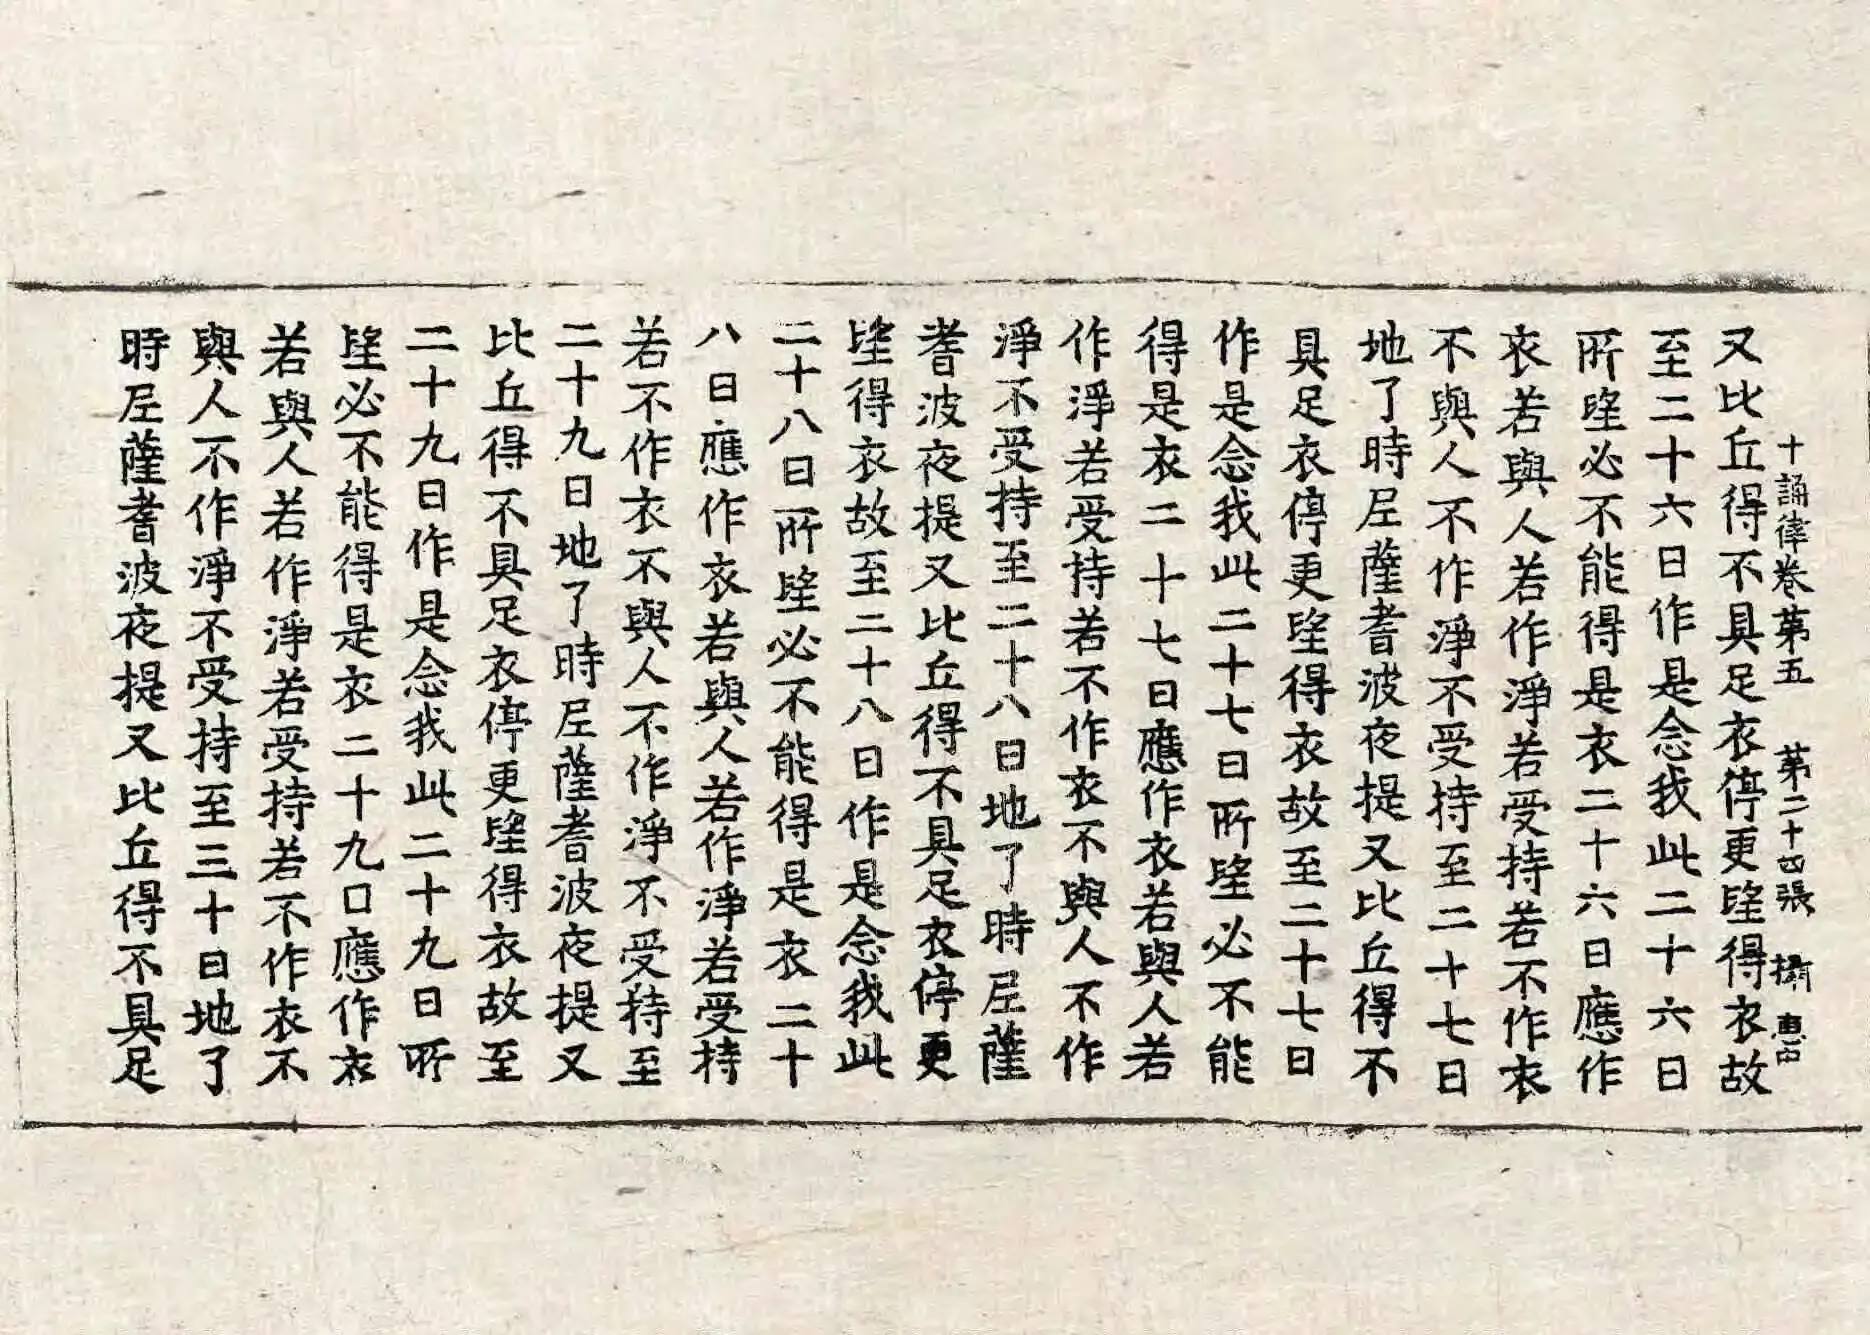 十誦律卷第五 第二十四張 攝 惠
又比丘得不具足衣停更望得衣故
至二十六日作是念我此二十六日
所望必不能得是衣二十六日應作
衣若與人若作淨若受持若不作衣
不與人不作淨不受持至二十七日
地了時尼薩耆波夜提又比丘得不
具足衣停更望得衣故至二十七日
作是念我此二十七日所望必不能
得是衣二十七日應作衣若與人若
作淨若受持若不作衣不與人不作
淨不受持至二十八日地了時尼薩
耆波夜提又比丘得不具足衣停更
望得衣故至二十八日作是念我此
二十八日所望必不能得是衣二十
八日應作衣若與人若作淨若受持
若不作衣不與人不作淨不受持至
二十九日地了時尼薩耆波夜提又
比丘得不具足衣停更望得衣故至
二十九日作是念我此二十九日所
望必不能得是衣二十九口應作衣
若與人若作淨若受持若不作衣不
與人不作淨不受持至三十日地了
時尼薩耆波夜提又比丘得不具足